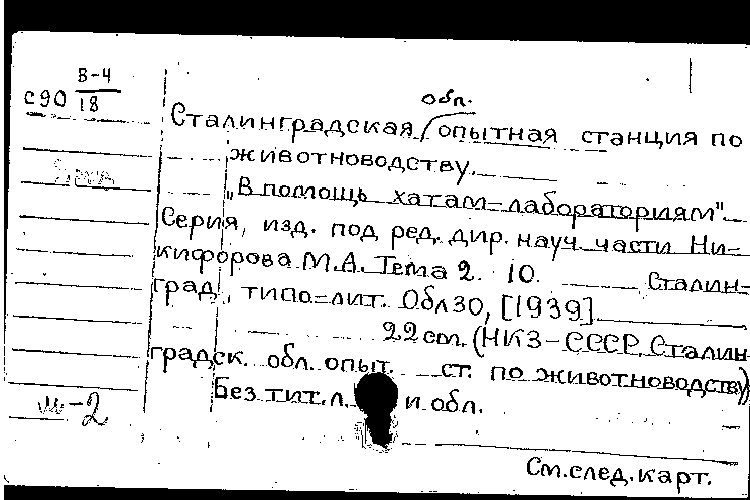 В-4
с90 18
обл.
Сталинградская опытная станция по
животноводству.
„В помощь хатам-лабораториям"
Серия, изд. под ред. дир. науч. части Ни-
кифорова М.А. Тема 2. 10. Сталин-
град, типо=лит. Обл30, [1939]
22 см. (НКЗ-СССР. Сталин
градск. обл. опыт. ст. по животноводству)
Без тит. л. и обл.
ш-2
См.след.карт.